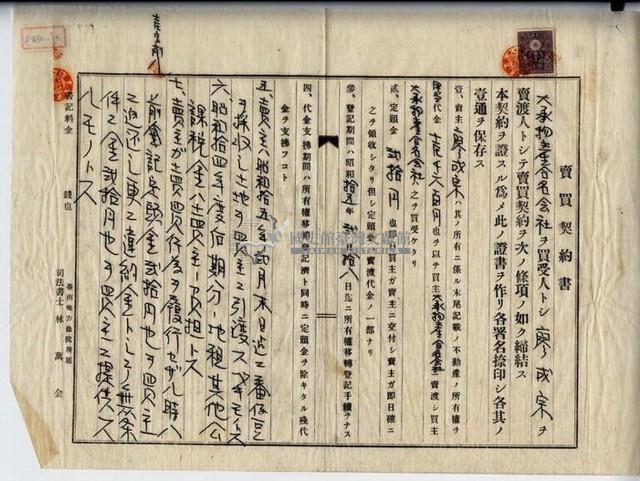 賣買契約書
大承物產合名会社ヲ買受人トシ廖成宗ヲ
賣渡人トシテ賣買契約ヲ次ノ條項ノ如ク締結ス
本契約ヲ證スル為メ此ノ證書ヲ作リ各署名捺印シ各其ノ
壹通ヲ保存ス
壹、賣主廖成宗ハ其ノ所有ニ係ル末尾記載ノ不動產ノ所有權ヲ
代金 六百円也ヲ以テ買主大承物產合名会社ニ賣渡シ買主
大承物產合名会社ハ之ヲ買受ケタリ
貳、定頭金貳拾円也即日買主ガ賣主ニ交付シ賣主ガ即日確ニ
之ヲ領收シタリ但シ定頭金ハ賣渡代金ノ一部ナリ
參、登記期間ハ昭和拾五年貳月 拾八日迄ニ所有權移轉登記手續ヲナス
四、代金支拂期間ハ所有權移轉登記濟ト同時ニ定頭金ヲ除キタル殘代
金ヲ支拂フコト
五、賣主ハ昭和拾五年貳月末日迄ニ番仔
ヲ採收シ土地ヲ買主ニ引渡スベキモノトス
六、昭和拾四年度后期分ノ地租其他公
課稅金ハ賣主ノ負担トス
七、賣主ガ賣買行為ヲ履行セザル時ハ
前金記定頭金貳拾円也ヲ買主
ニ返还シ更ニ違約金トシテ無条
件ニ金貳拾円也ヲ買主ニ提供ス
ルモノトス
書記料金 錢也
臺南地方法院所屬
司法書士 林萬金
國史館臺灣文獻館